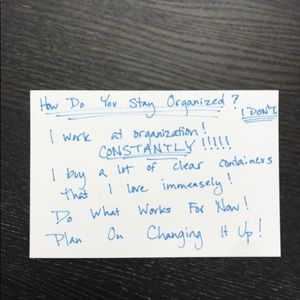 How Do You Stay Organized?
I DON'T.
I work at organization!
CONSTANTLY!!!!!
I buy a lot of clear containers
that I love immensely!
Do What Works For Now!
Plan On Changing It Up!